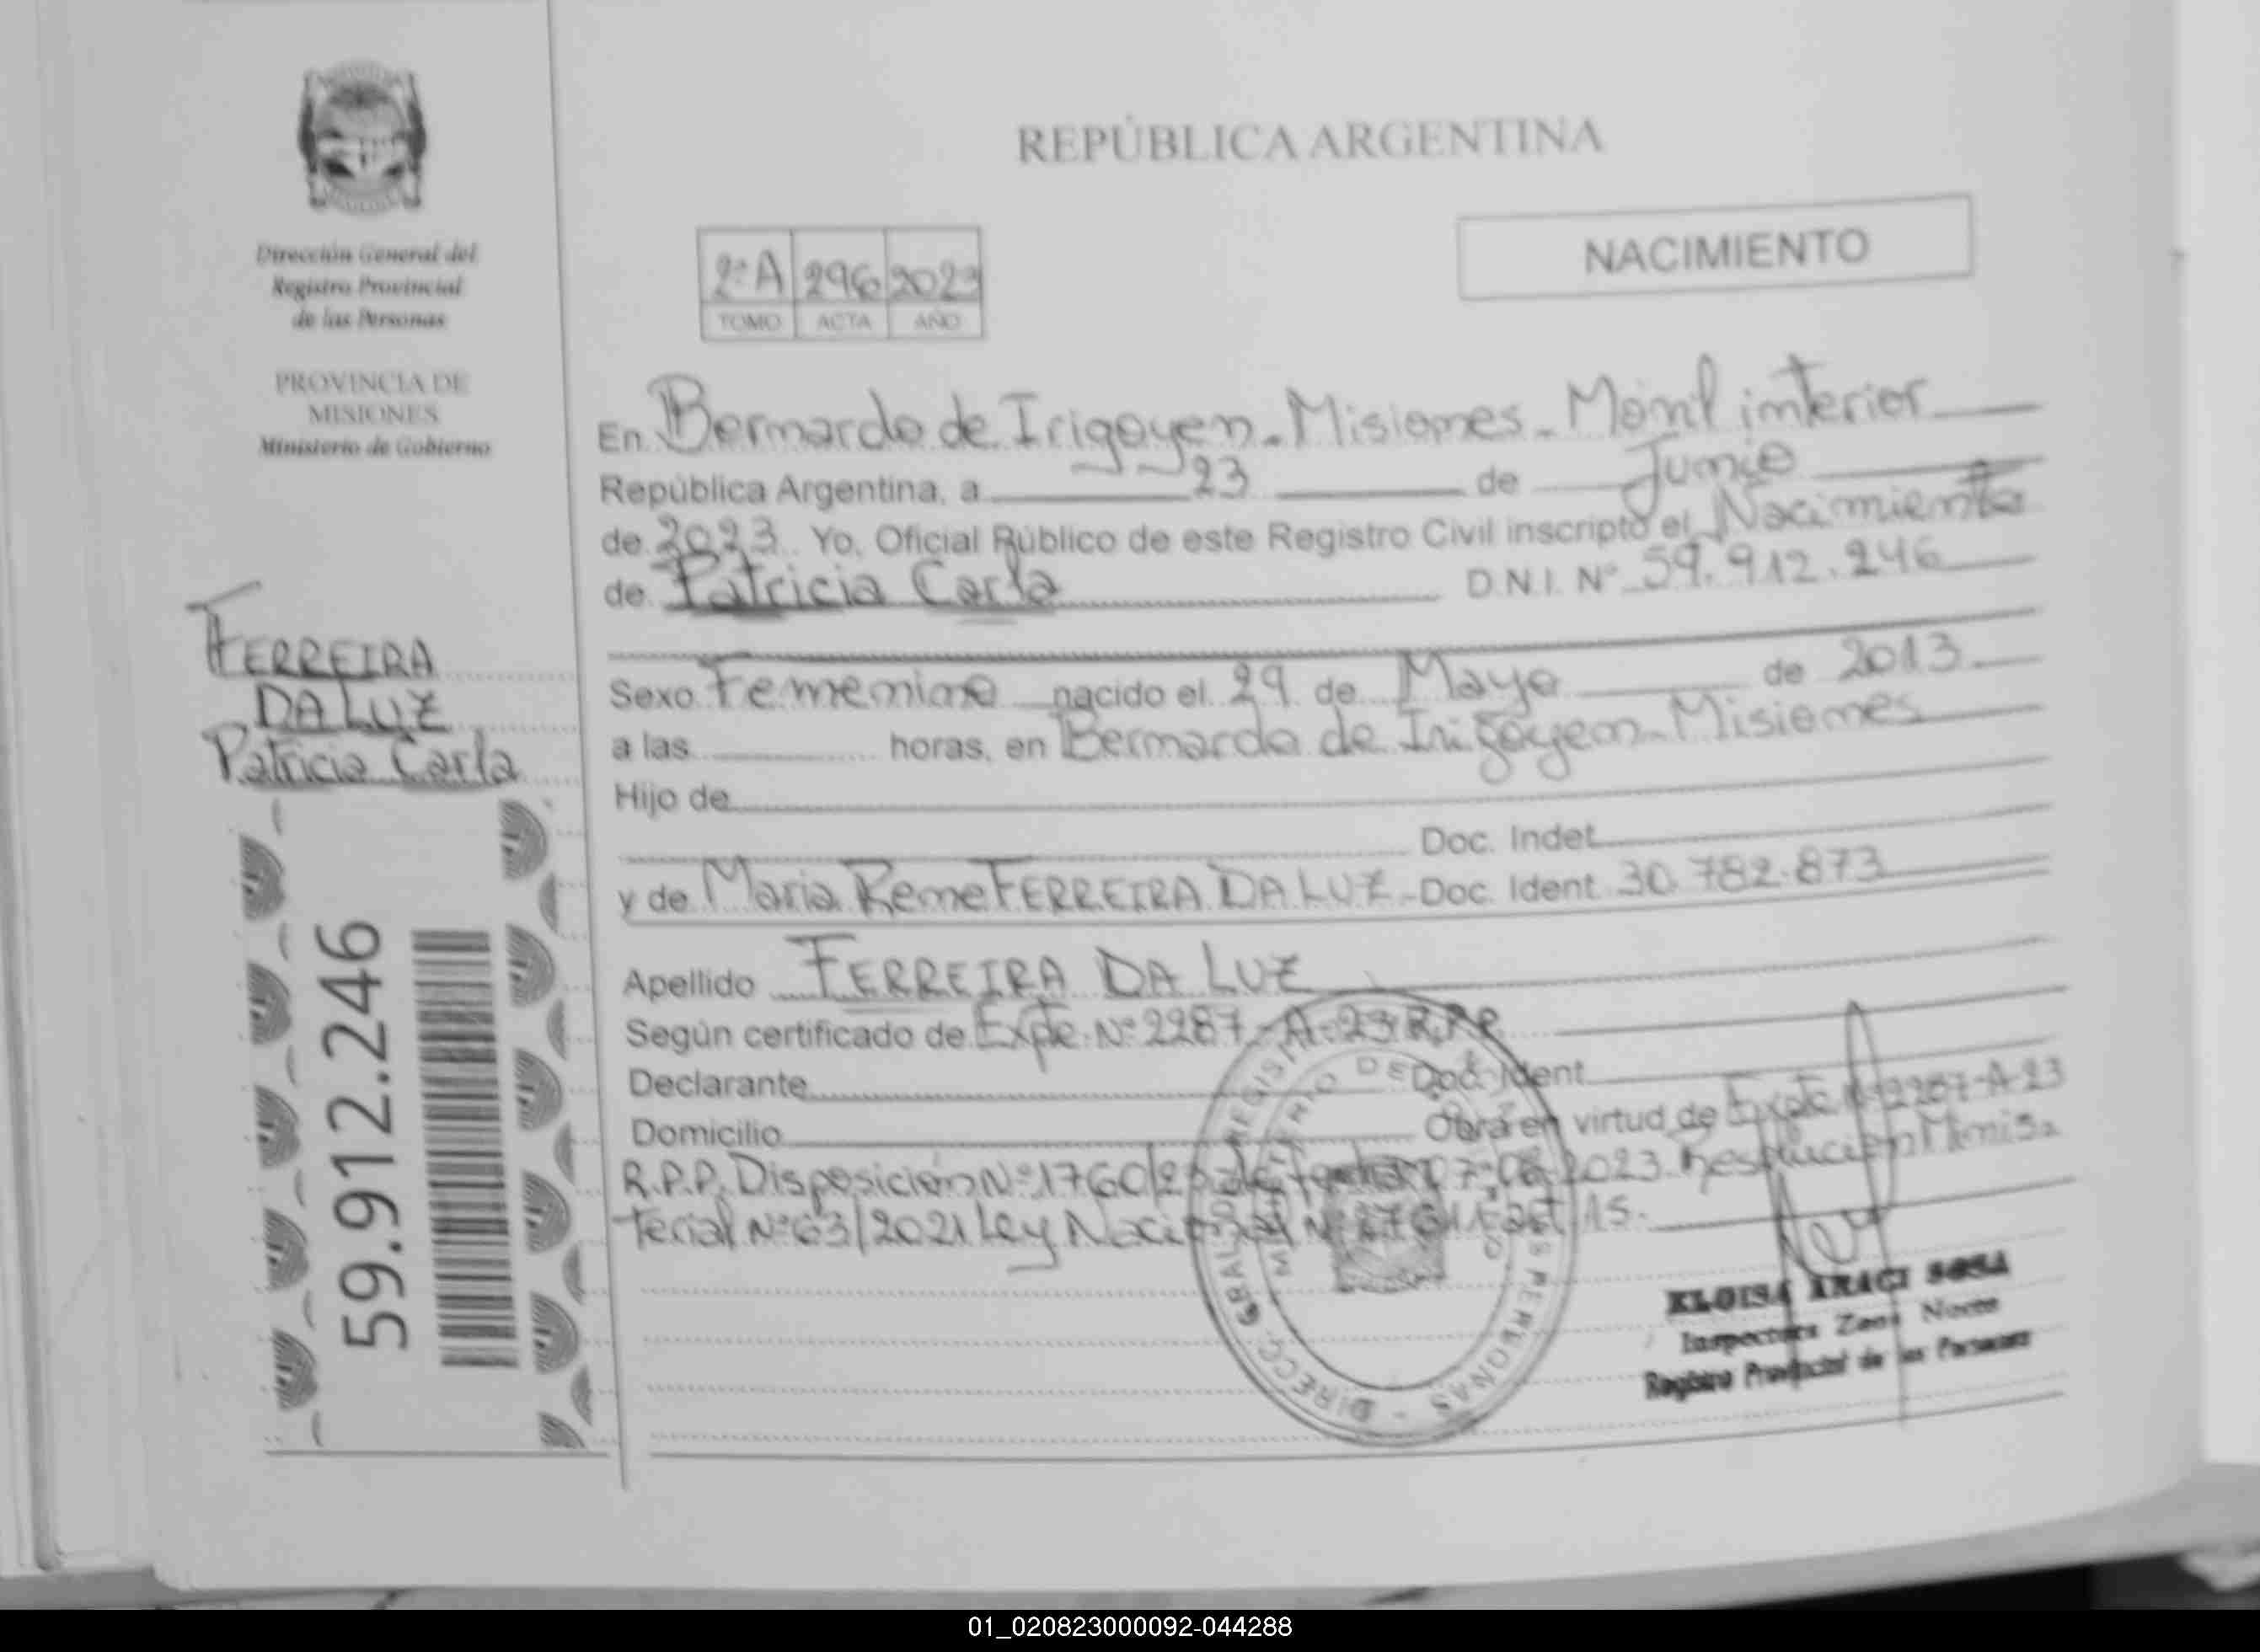 Dirección General del
Registro Provincial
de las Personas
PROVINCIA DE
MISIONES
Ministerio de Gobierno
FERREIRA
DA LUZ
Patricia Carla
59.912.246
REPÚBLICA ARGENTINA
NACIMIENTO
2ºA 296 2023
TOMO ACTA AÑO
En Bernardo de Irigoyen - Misiones - Móvil interior
República Argentina, a 23 de Junio
de 2023 Yo, Oficial Público de este Registro Civil inscripto el Nacimiento
de Patricia Carla D.N.I. Nº 59.912.246
Sexo Femenino nacido el 29 de Mayo de 2013
a las horas, en Bernardo de Irigoyen - Misiones
Hijo de
Doc. Indet.
y de Maria Rene FERREIRA DA LUZ - Doc. Ident. 30.782.873
Apellido FERREIRA DA LUZ
Según certificado de Expte. Nº 2287-A-23 R.P.P.
Declarante Doc. Ident.
Domicilio Obra en virtud de Expte Nº 2287-A-23
R.P.P. Disposición Nº 1760/23 de fecha 07-06-2023. Resolución Minis
terial Nº 63/2021 Ley Nacional Nº art 15.
ELOISA ARACI SOSA
Inspectora Zona Norte
Registro Provincial de las Personas
DIRECC. GRAL. REGIST PERSONAS
MINISTERIO DE
01_020823000092-044288